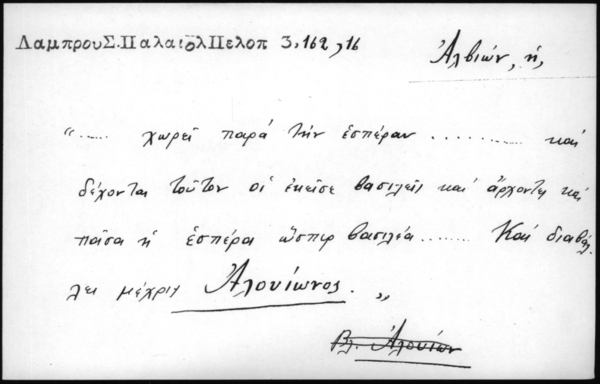 ΛαμπρουΣ.ΠαλαιολΠελοπ 3,162,16
Ἀλβιών, ἡ,
"...... χωρεῖ παρὰ τὴν ἑσπέραν .......... καὶ
δέχονται τοῦτον οἱ ἐκεῖσε βασιλεῖς καὶ ἄρχοντες καὶ
πᾶσα ἡ ἑσπέρα ὥσπερ βασιλέα........ Καὶ διαβάλ
λει μέχρις Ἀλουίωνος. "
Βλ. Ἀλουίων